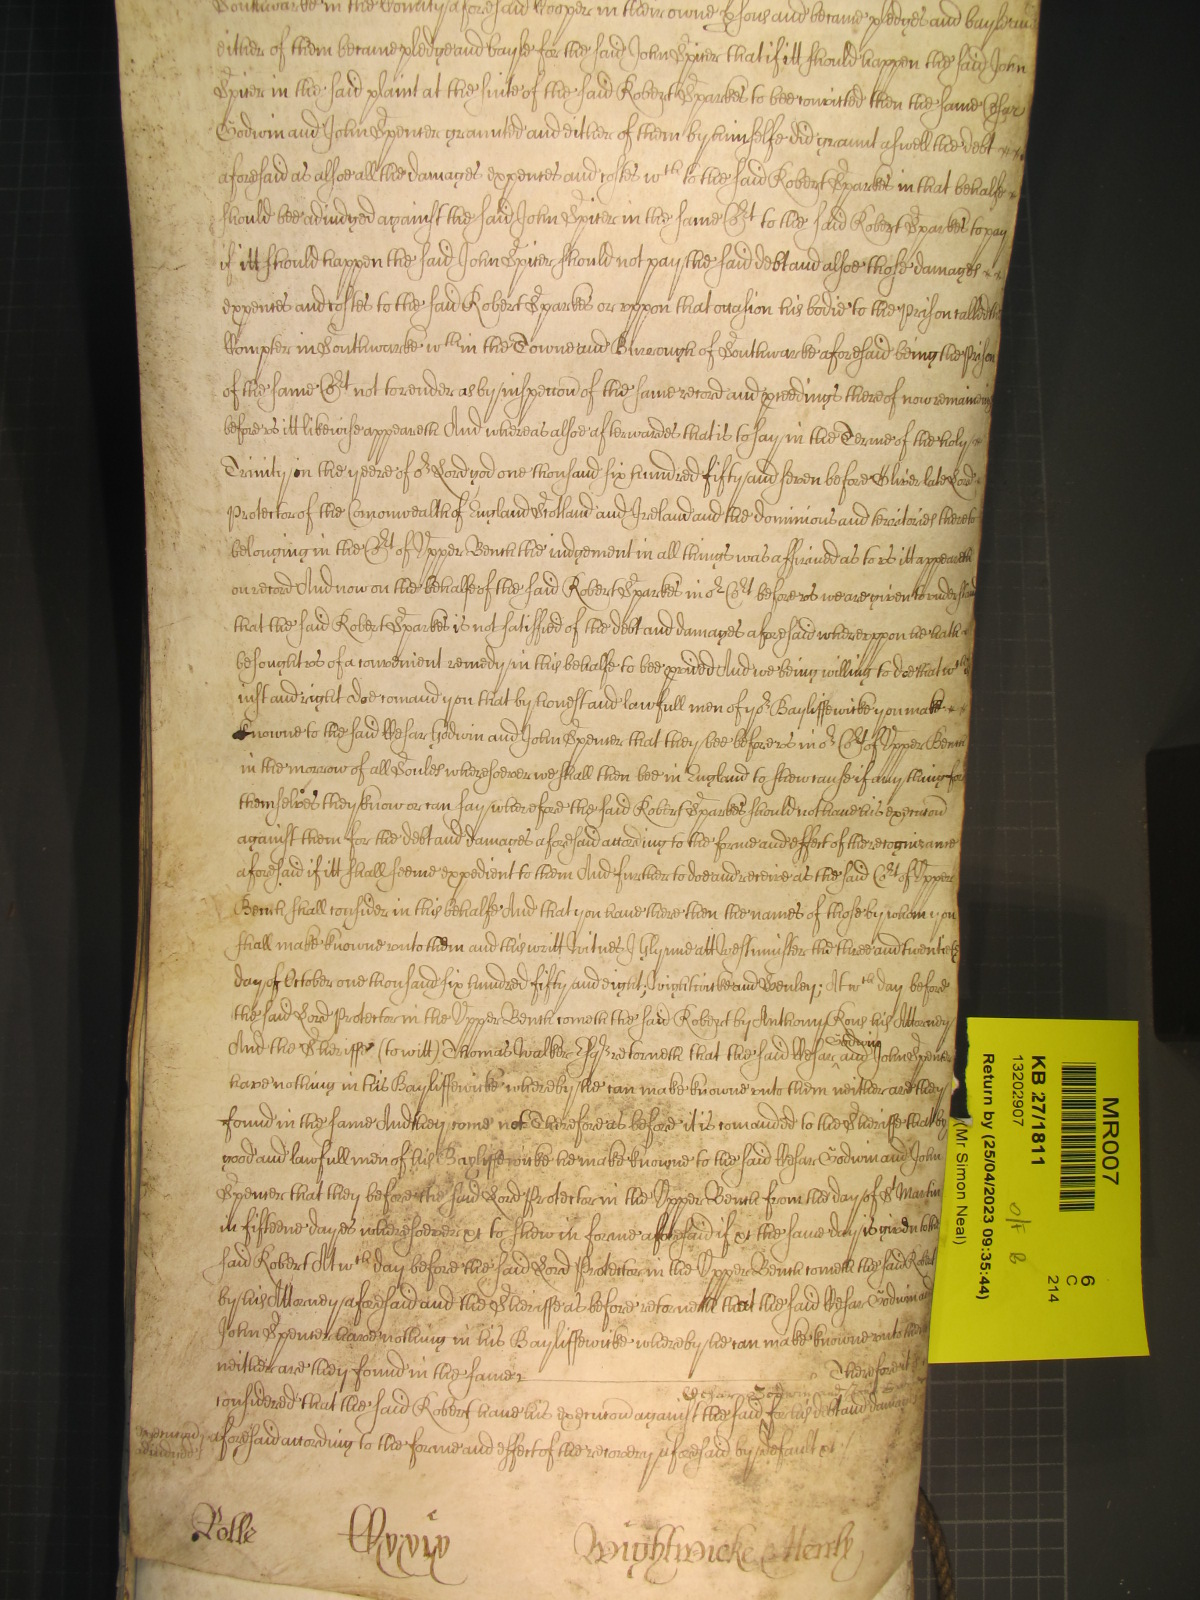 Southwarke in the County aforesaid Cooper in their owne psons and became pledges and bayle and
either of them became pledge and bayle for the said John Spicer that if itt should happen the said John
Spicer in the said plaint at the suite of the said Robert Sparkes to bee convicted then the same Cesar
Godwin and John Spencer graunted and either of them by himselfe did graunt aswell the debt
aforesaid as alsoe all the damages expences and costes wch to the said Robert Sparkes in that behalfe
should bee adiudged against the said John Spicer in the same Cort to the said Robert Sparkes to pay
if itt should happen the said John Spicer should not pay the said debt and alsoe those damages
expences and costes to the said Robert Sparkes or vppon that occasion his bodie to the Prison called the
Compter in Southwarke wthin the Towne and Burrough of Southwarke aforesaid being the Prison
of the same Cort not to render as by inspeccon of the same record and pceedings thereof now remaining
before vs itt likewise appeareth And whereas alsoe afterwardes that is to say in the Terme of the holy
Trinity in the yeere of or Lord god one thousand six hundred fifty and seven before Oliver late Lord
Protector of the Comonwealth of England Scotland and Ireland and the dominions and territories thereto
belonging in the Cort of Vpper Bench the iudgement in all things was affirmed as to vs itt appeareth
on record And now on the behalfe of the said Robert Sparkes in or Cort before vs we are given to understand
that the said Robert Sparkes is not satisfied of the debt and damages aforesaid wherevppon he hath
besought vs of a convenient remedy in this behalfe to bee pvided And we being willing to doe that wch is
iust and right doe comand you that by honest and lawfull men of yor Bayliffewicke you make
knowne to the said Cesar Godwin and John Spencer that they bee before vs in or Cort of Vpper Bench
in the morrow of all Soules wheresoever we shall then bee in England to shew cause if any thing for
themselves they know or can say wherefore the said Robert Sparkes should not have his execucon
against them for the debt and damages aforesaid according to the forme and effect of the recognizance
aforesaid if itt shall seeme expedient to them And further to doe and receive as the said Cort of Vpper
Bench shall consider in this behalfe And that you have there then the names of those by whom you
shall make knowne vnto them and this writt Witnes J Glynne att Westminster the three and twentieth
day of October one thousand six hundred fifty and eight; Wightwicke and Henley; At wch day before
the said Lord Protector in the Vpper Bench cometh the said Robert by Anthony Rous his Attorney
And the Sheriffe (to witt) Thomas Walker Esqr retorneth that the said Cesar Godwin and John Spencer
have nothing in his Bayliffewicke whereby he can make knowne vnto them neither are they
found in the same And they come not Therefore as before it is comanded to the Sheriffe that by
good and lawfull men of his Bayliffewicke he make knowne to the said Cesar Godwin and John
Spencer that they be before the said Lord Protector in the Vpper Bench from the day of St Martin
in fifteene dayes wheresoever &c to shew in forme aforesaid if &c the same day is given to the
said Robert At wch day before the said Lord Protector in the Vpper Bench cometh the said Robert
by his Attorney aforesaid and the Sheriffe as before retorneth that the said Cesar Godwin and
John Spencer have nothing in his Bayliffewicke whereby he can make knowne vnto them
neither are they found in the same Therefore it is
considered that the said Robert have his execucon against the said Cesar Godwin and John Spencer for his debt and damages
aforesaid according to the forme and effect of the recovery aforesaid by default &c
Rolle
Wightwicke Henly
MR007
6
C
214
KB 27/1811
13202907
Return by (25/04/2023 09:35:44)
(Mr Simon Neal)